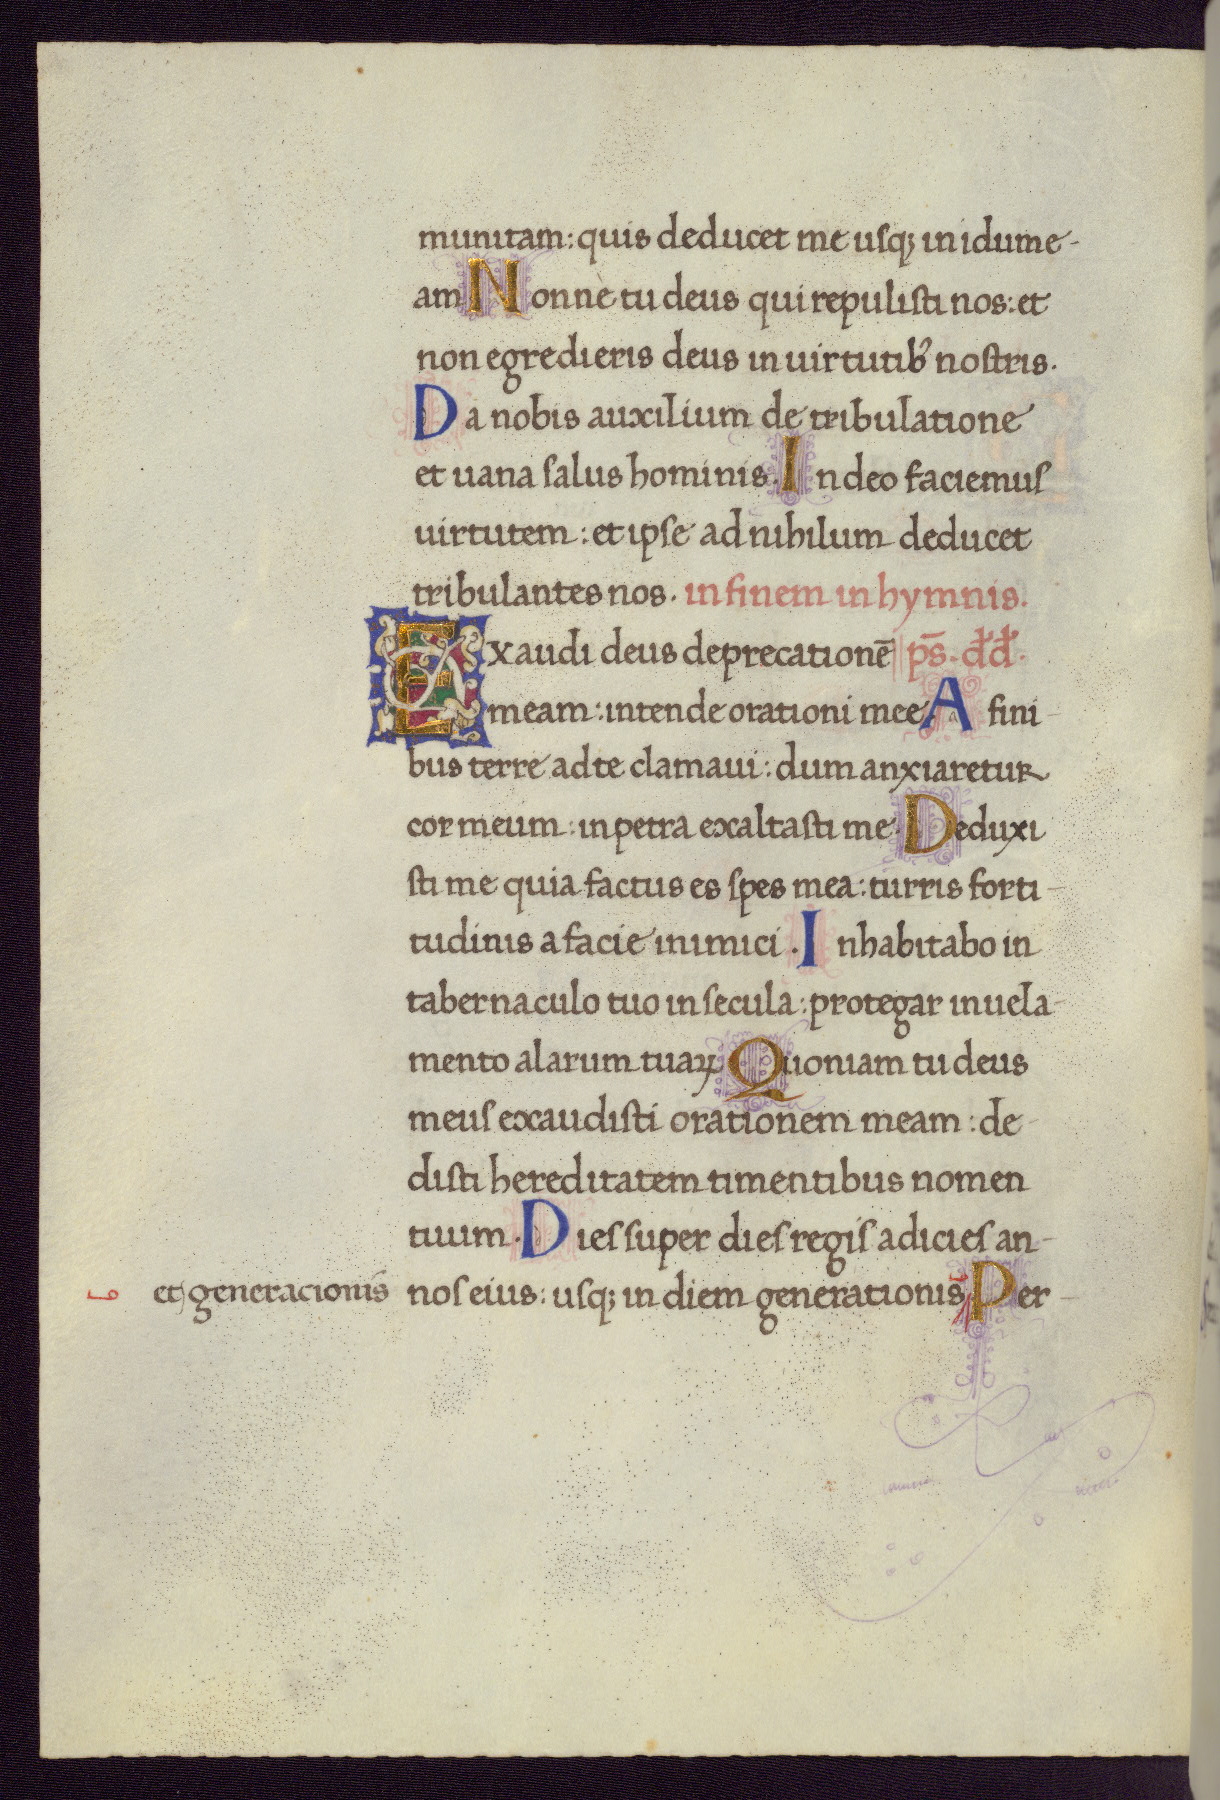 munitam: quis deducet me usq; in idume-
am Nonne tu deus qui repulisti nos: et
non egredieris deus in uirtutib' nostris.
Da nobis auxilium de tribulatione
et uana salus hominis. In deo faciemus
uirtutem: et ipse ad nihilum deducet
tribulantes nos. in finem in hymnis.
Exaudi deus deprecationē ps̄. dd.
meam: intende orationi mee A fini-
bus terre ad te clamaui: dum anxiaretur
cor meum: in petra exaltasti me. Deduxi
sti me quia factus es spes mea: turris forti-
tudinis a facie inimici. Inhabitabo in
tabernaculo tuo in secula: protegar in uela-
mento alarum tuaꝝ Quoniam tu deus
meus exaudisti orationem meam: de-
disti hereditatem timentibus nomen
tuum. Dies super dies regis adicies an-
et generacionis nos eius: usq; in diem generationis Per-